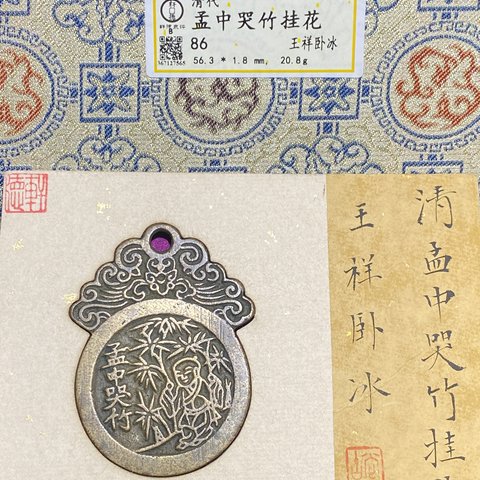 清代
孟中哭竹挂花
86
王祥卧冰
56.3 * 1.8 mm, 20.8g
孟中哭竹
清孟中哭竹挂
王祥卧冰